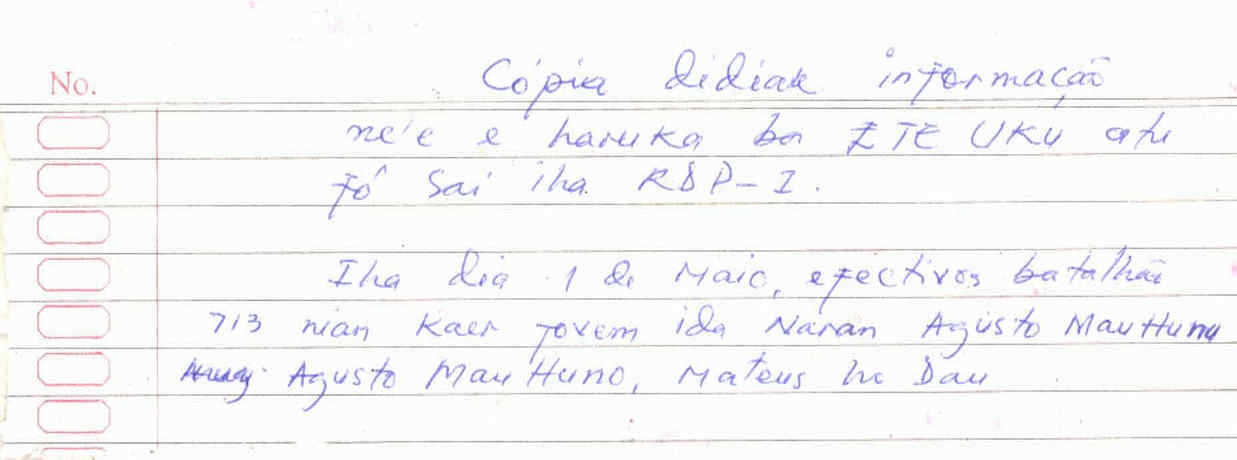 No.
Cópia didiak informação
ne'e e haruka ba ETE UKU atu
fó sai iha RDP-I.
Iha dia 1 de Maio, efectivos batalhão
713 nian kaer jovem ida naran Agusto Mau Hunu
Agusto Mau Huno, Mateus ho Dau